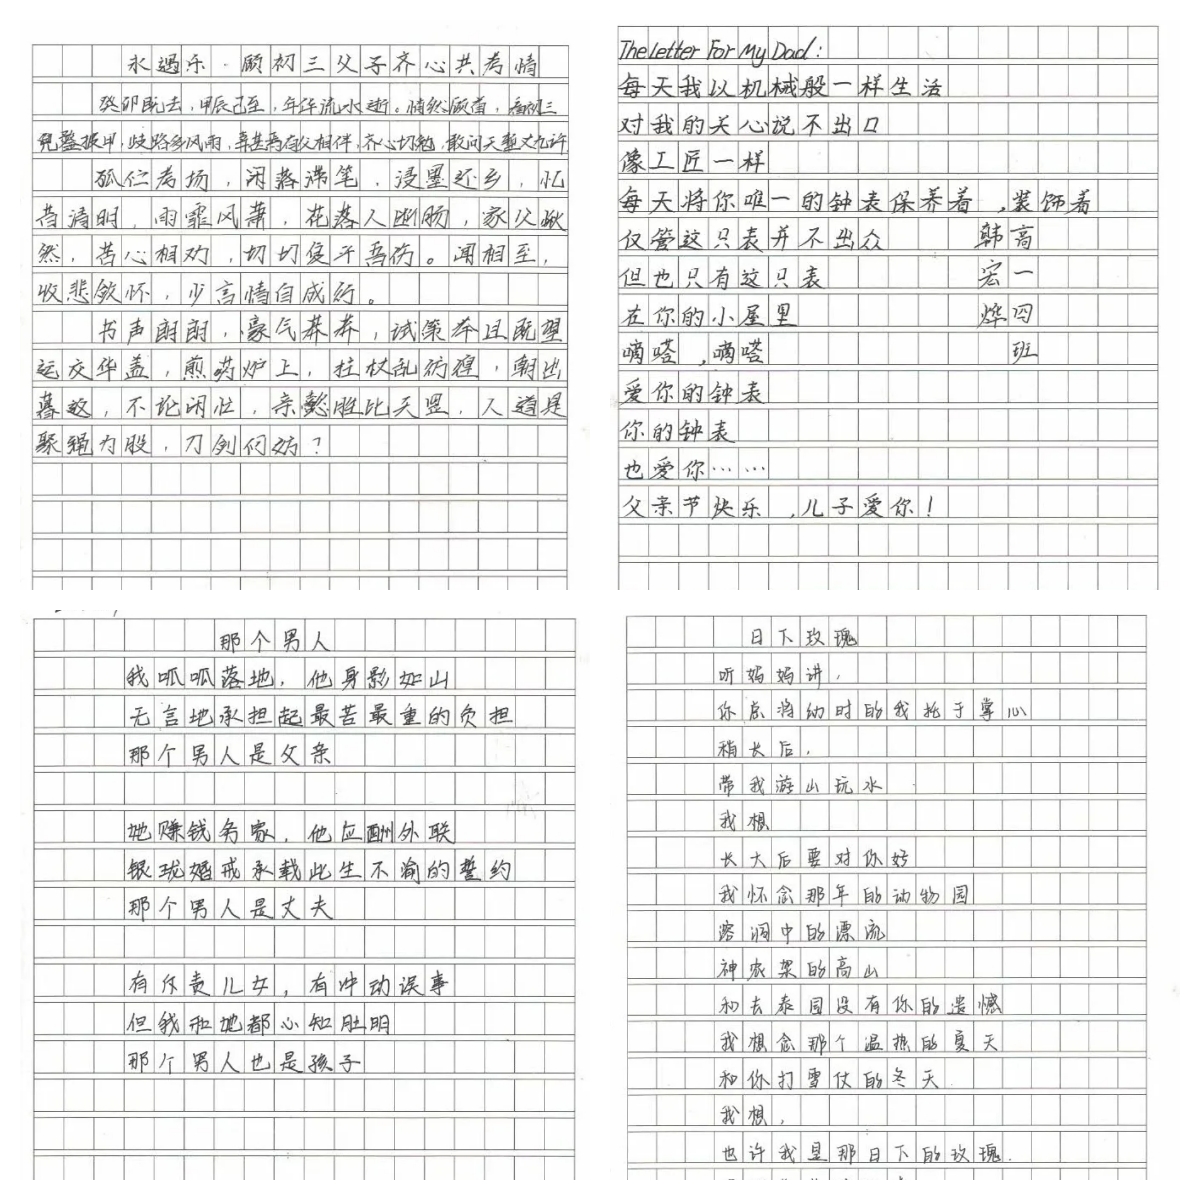 永遇乐·顾初三父子齐心共考情
癸卯既去，甲辰已至，年华流水逝。悄然顾首，看初三
兜鍪披甲，歧路多风雨，幸甚焉有父相伴，齐心切勉，敢问天堑又允许
孤伫考场，闲落滞笔，浸墨还乡，忆
昔清明，雨霏风萧，花落人幽肠，家父愀
然，苦心相劝，切切复乎吾伤。闻相至，
收悲敛怀，少言情自成行。
书声朗朗，豪气莽莽，试策奔且既望
运交华盖，煎药炉上，拄杖乱彷徨，朝出
暮效，不论闲忙，亲彭胜比天罡，人道是
聚绳为股，刀剑何妨？
The Letter For My Dad:
每天我以机械般一样生活
对我的关心说不出口
像工匠一样
每天将你唯一的钟表保养着，装饰着
仅管这只表并不出众
但也只有这只表
在你的小屋里
嘀嗒，嘀嗒
爱你的钟表
你的钟表
也爱你……
父亲节快乐，儿子爱你！
韩高
宏一
烨四
班
那个男人
我呱呱落地，他身影如山
无言地承担起最苦最重的负担
那个男人是父亲
她赚钱务家，他应酬外联
银珑婚戒承载此生不渝的誓约
那个男人是丈夫
有斥责儿女，有冲动误事
但我和她都心知肚明
那个男人也是孩子
日下玫瑰
听妈妈讲，
你总将幼时的我托于掌心
稍长后，
带我游山玩水
我想
长大后要对你好
我怀念那年的动物园
溶洞中的漂流
神农架的高山
和去泰国没有你的遗憾
我想念那个温热的夏天
和你打雪仗的冬天
我想，
也许我是那日下的玫瑰.